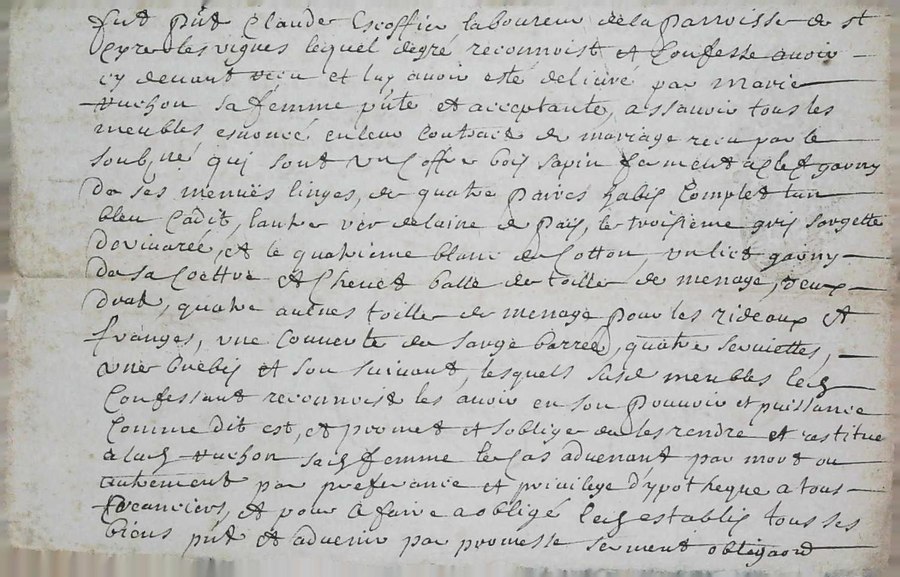 fut pñt Claude Escoffier laboureur de la parroisse de st
Cyre les vigues lequel degré reconnoist et Confesse avoir
cy devant receu et luy avoir esté delivré par Marie
vuchon sa femme pñte et acceptante, assavoir tous les
meubles esnoncé en leur Contract de mariage receu par le
soub,né qui sont un Coffre bois sapin fermant a clef garny
de ses menües linges, de quatre paires habis Complet l'un
bleu Cadit, lautre ver de laine de païs, le troisième gris sargette
de vivarée, et le quatrieme blanc de Cotton, un lict garny
de sa Coettre et Chevet balle de toille de menage, deux
drat, quatre aulnes toille de menage pour les rideaux et
franges, une Couverte de sarge barreé, quatre serviettes,
une brebis et son suivant, lesquels susd meubles led
Confessant reconnoist les avoir en son pouvoir et puissance
Comme dit est, et promet et soblige de les rendre et restitue
a lad vuchon sad femme le Cas advenant par mort ou
autrement par preferance et privilege d'ypotheque a tous
Creanciers, et pour Ce faire a obligé led establis tous ses
biens pñt et advenir par promesse serment obligaõn